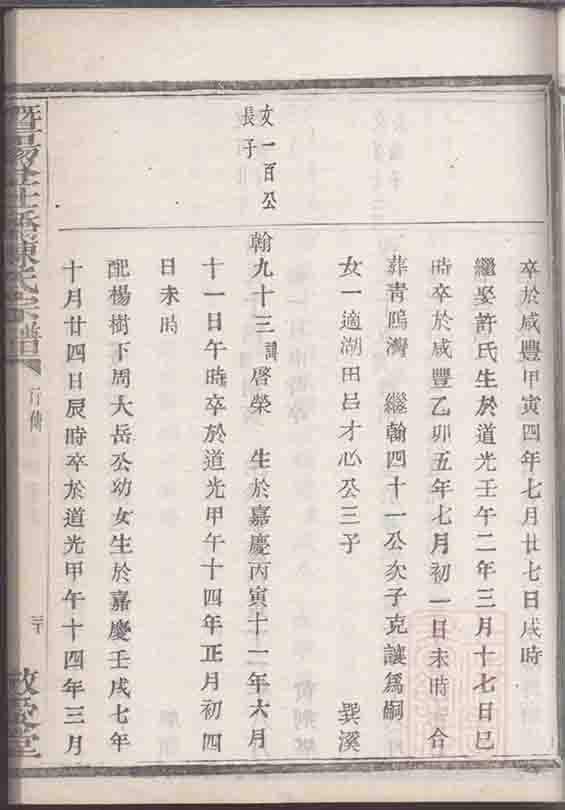 卒於咸豐甲寅四年七月廿七日戌時
繼娶許氏生於道光壬午二年三月十七日巳
時卒於咸豐乙卯五年七月初一日未時 合
葬青鳴灣 繼翰四十一公次子克讓爲嗣
女一適湖田呂才心公三子 巽溪
文一百公
長子
翰九十三諱啓榮 生於嘉慶丙寅十一年六月
十一日午時卒於道光甲午十四年正月初四
日未時
配楊樹下周大岳公幼女生於嘉慶壬戌七年
十月廿四日辰時卒於道光甲午十四年三月
陳氏宗譜
行傳
敬愛堂